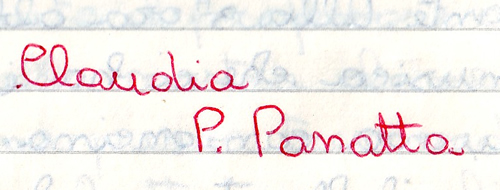 Claudia
P. Panatta